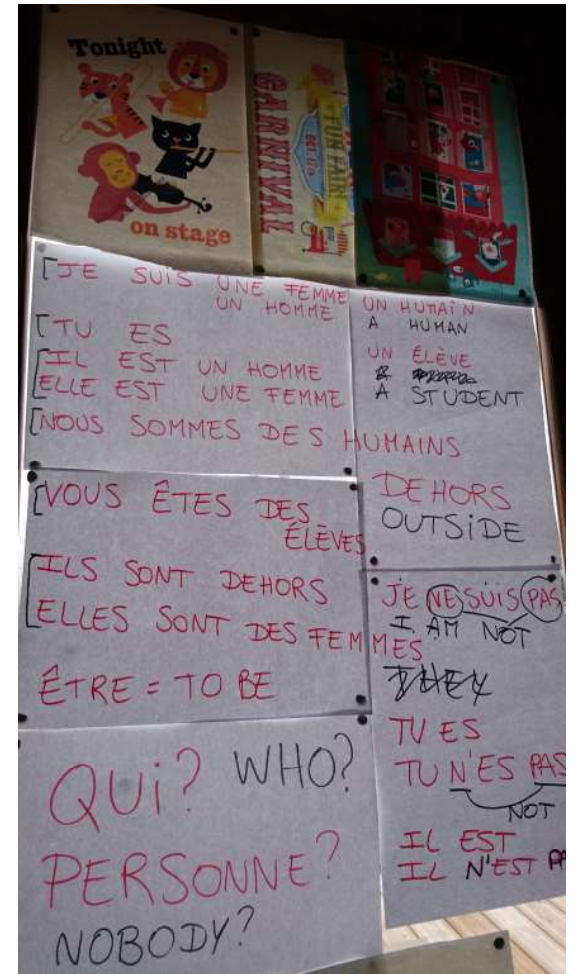 Tonight
on stage
FUN FAIR
CARNIVAL
JE SUIS UNE FEMME
UN HOMME
TU ES
IL EST UN HOMME
ELLE EST UNE FEMME
NOUS SOMMES DES HUMAINS
UN HUMAIN
A HUMAN
UN ÉLÈVE
A STUDENT
DEHORS
OUTSIDE
VOUS ÊTES DES
ÉLÈVES
ILS SONT DEHORS
ELLES SONT DES FEMMES
ÊTRE = TO BE
JE NE SUIS PAS
I AM NOT
THEY
TU ES
TU N'ES PAS
NOT
IL EST
IL N'EST PA
QUI? WHO?
PERSONNE?
NOBODY?